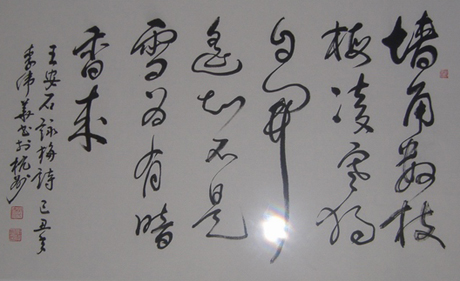 墙角数枝
梅凌寒独
自开
遥知不是
雪为有暗
香来
王安石詠梅詩 己丑冬
李伟華书於杭州